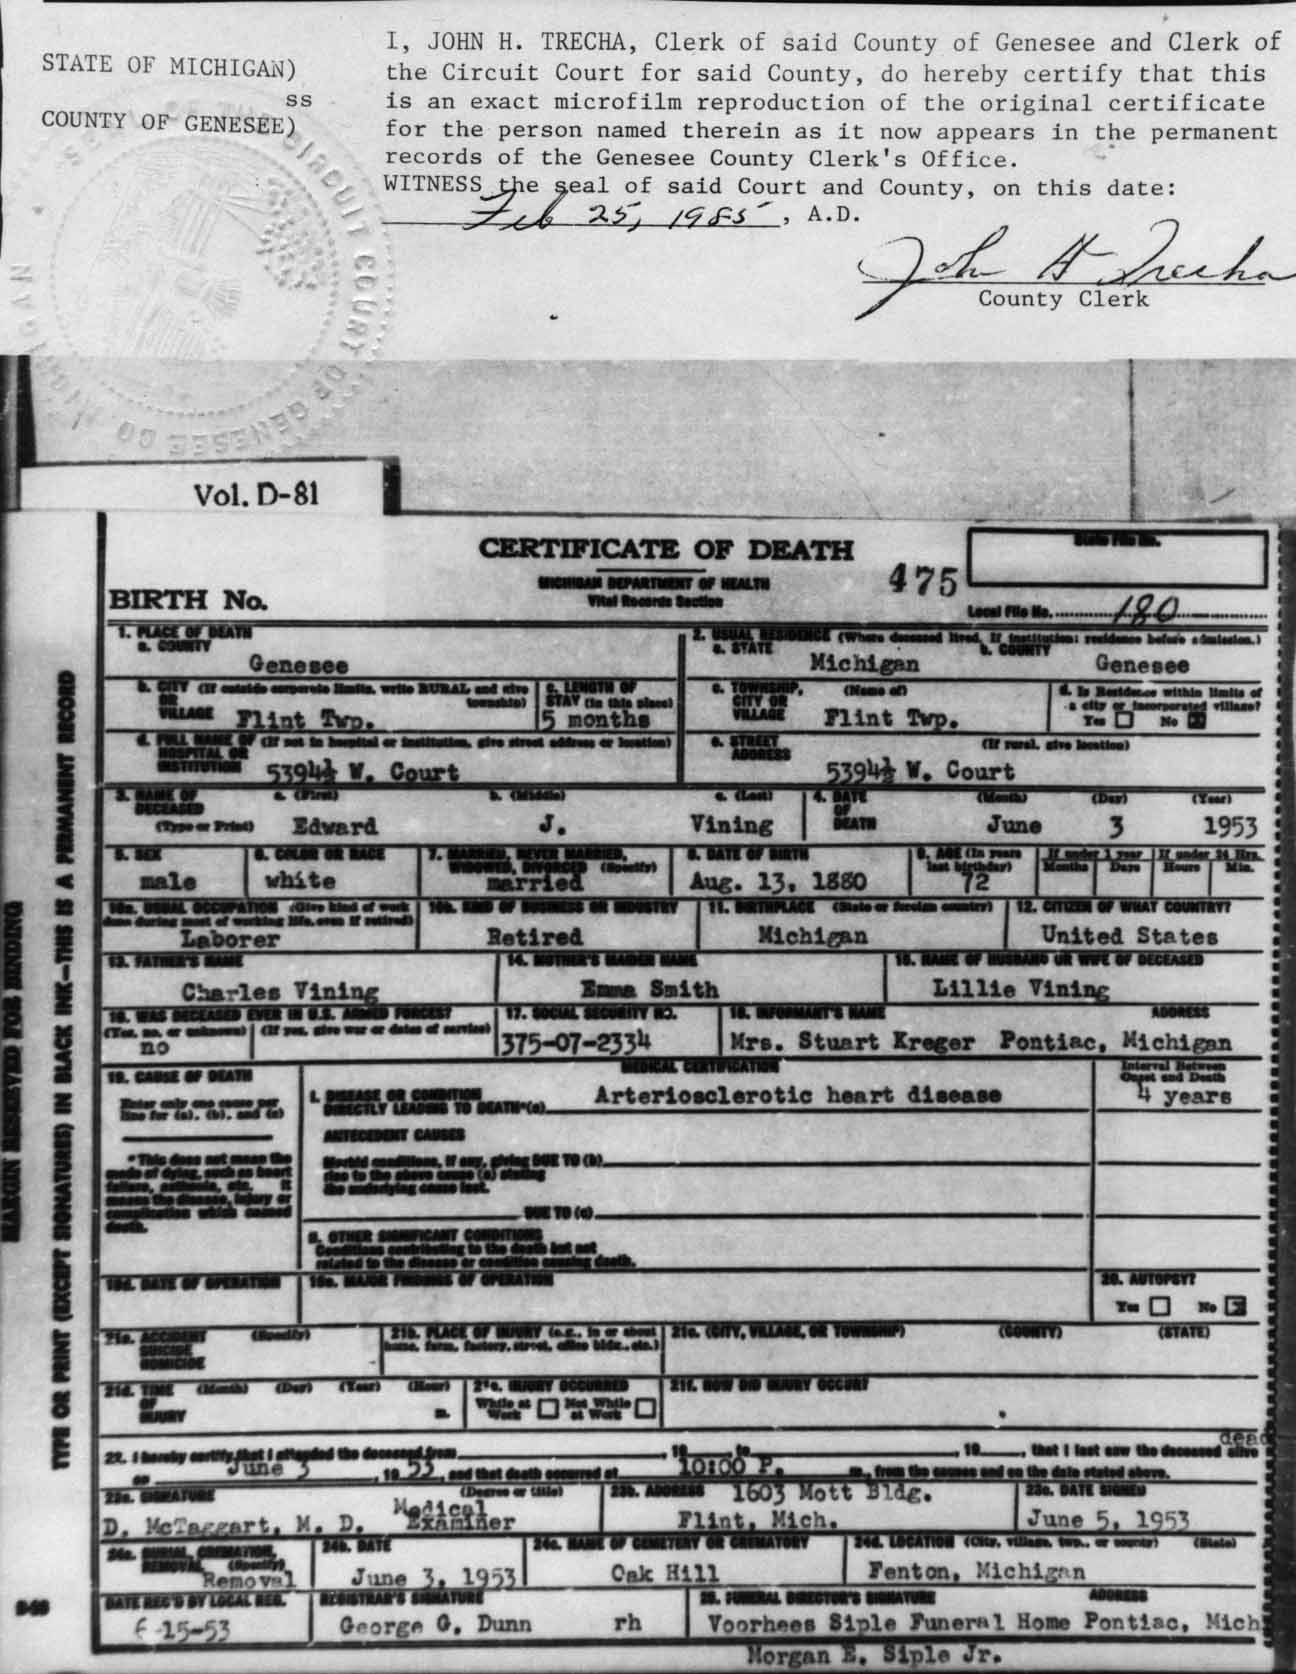 STATE OF MICHIGAN)
ss
COUNTY OF GENESEE)
I, JOHN H. TRECHA, Clerk of said County of Genesee and Clerk of
the Circuit Court for said County, do hereby certify that this
is an exact microfilm reproduction of the original certificate
for the person named therein as it now appears in the permanent
records of the Genesee County Clerk's Office.
WITNESS the seal of said Court and County, on this date:
Feb 25, 1985, A.D.
John H Trecha
County Clerk
SEAL OF THE CIRCUIT COURT OF GENESEE CO MICHIGAN
Vol. D-81
CERTIFICATE OF DEATH
MICHIGAN DEPARTMENT OF HEALTH
Vital Records Section
475
State File No.
BIRTH No.
Local File No. 180
1. PLACE OF DEATH
a. COUNTY
Genesee
2. USUAL RESIDENCE (Where deceased lived. If institution: residence before admission.)
a. STATE
Michigan
b. COUNTY
Genesee
b. CITY (If outside corporate limits, write RURAL and give township)
OR
VILLAGE Flint Twp.
c. LENGTH OF
STAY (in this place)
5 months
c. TOWNSHIP, (Name of)
CITY OR
VILLAGE Flint Twp.
d. Is Residence within limits of
a city or incorporated village?
Yes No X
d. FULL NAME OF (If not in hospital or institution, give street address or location)
HOSPITAL OR
INSTITUTION 5394½ W. Court
e. STREET (If rural, give location)
ADDRESS
5394½ W. Court
3. NAME OF DECEASED
(Type or Print)
a. (First)
Edward
b. (Middle)
J.
c. (Last)
Vining
4. DATE OF DEATH
(Month) (Day) (Year)
June 3 1953
5. SEX
male
6. COLOR OR RACE
white
7. MARRIED, NEVER MARRIED,
WIDOWED, DIVORCED (Specify)
married
8. DATE OF BIRTH
Aug. 13, 1880
9. AGE (In years
last birthday)
72
If under 1 year
Months Days
If under 24 Hrs.
Hours Min.
10a. USUAL OCCUPATION (Give kind of work
done during most of working life, even if retired)
Laborer
10b. KIND OF BUSINESS OR INDUSTRY
Retired
11. BIRTHPLACE (State or foreign country)
Michigan
12. CITIZEN OF WHAT COUNTRY?
United States
13. FATHER'S NAME
Charles Vining
14. MOTHER'S MAIDEN NAME
Emma Smith
15. NAME OF HUSBAND OR WIFE OF DECEASED
Lillie Vining
16. WAS DECEASED EVER IN U.S. ARMED FORCES?
(Yes, no, or unknown) (If yes, give war or dates of service)
no
17. SOCIAL SECURITY NO.
375-07-2334
18. INFORMANT'S NAME ADDRESS
Mrs. Stuart Kreger Pontiac, Michigan
MEDICAL CERTIFICATION
19. CAUSE OF DEATH
Enter only one cause per
line for (a), (b), and (c)
*This does not mean the
mode of dying, such as heart
failure, asthenia, etc. It
means the disease, injury or
complication which caused
death.
I. DISEASE OR CONDITION
DIRECTLY LEADING TO DEATH*(a) Arteriosclerotic heart disease
Interval Between
Onset and Death
4 years
ANTECEDENT CAUSES
Morbid conditions, if any, giving DUE TO (b)
rise to the above cause (a) stating
the underlying cause last.
DUE TO (c)
II. OTHER SIGNIFICANT CONDITIONS
Conditions contributing to the death but not
related to the disease or condition causing death.
19d. DATE OF OPERATION
19e. MAJOR FINDINGS OF OPERATION
20. AUTOPSY?
Yes No X
21a. ACCIDENT (Specify)
SUICIDE
HOMICIDE
21b. PLACE OF INJURY (e.g., in or about
home, farm, factory, street, office bldg., etc.)
21c. (CITY, VILLAGE, OR TOWNSHIP) (COUNTY) (STATE)
21d. TIME (Month) (Day) (Year) (Hour)
OF
INJURY m.
21e. INJURY OCCURRED
While at Work Not While at Work
21f. HOW DID INJURY OCCUR?
22. I hereby certify that I attended the deceased from , 19 to , 19 , that I last saw the deceased alive dead
on June 3, 1953, and that death occurred at 10:00 P. m., from the causes and on the date stated above.
23a. SIGNATURE (Degree or title)
D. McTaggart, M. D. Medical Examiner
23b. ADDRESS 1603 Mott Bldg.
Flint, Mich.
23c. DATE SIGNED
June 5, 1953
24a. BURIAL, CREMATION,
REMOVAL (Specify)
Removal
24b. DATE
June 3, 1953
24c. NAME OF CEMETERY OR CREMATORY
Oak Hill
24d. LOCATION (City, village, twp., or county) (State)
Fenton, Michigan
DATE REC'D BY LOCAL REG.
6-15-53
REGISTRAR'S SIGNATURE
George G. Dunn rh
25. FUNERAL DIRECTOR'S SIGNATURE ADDRESS
Voorhees Siple Funeral Home Pontiac, Mich
Morgan E. Siple Jr.
MARGIN RESERVED FOR BINDING
TYPE OR PRINT (EXCEPT SIGNATURES) IN BLACK INK—THIS IS A PERMANENT RECORD